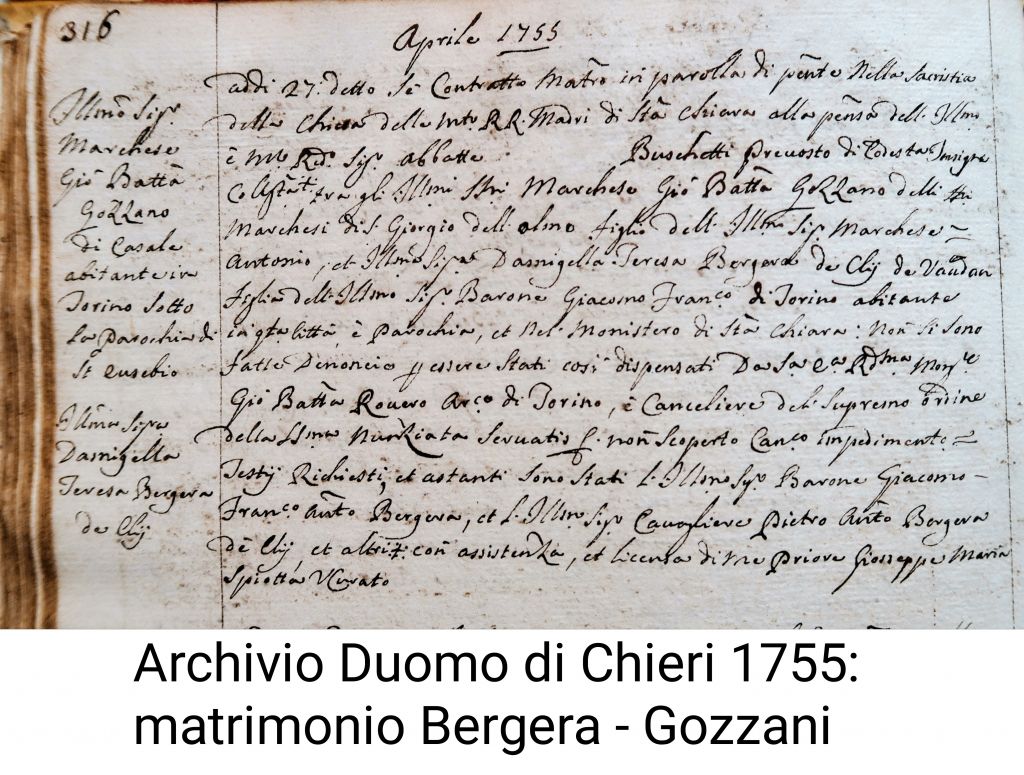 316
Aprile 1755
Illmo Sigr
Marchese
Gio Battā
Gozzano
di Casale
abitante in
Torino sotto
la parochia di
St eusebio
Illma Sigra
Damigella
Teresa Bergera
de Clij
addi 27: detto Sè Contratto Matro in parolla di pnte Nella Sacristia
della Chiesa delle Mto RR. Madri di Stā Chiara alla pensa dell. Illmo
è Mto Rdo Sigr abbatte Buschetti Prevosto di Codesta Insigne
fra gli Illmi Marchese Gio Battā Gozzano delli
Marchesi di S. Giorgio dell olmo figlio dell. Illmo Sigr Marchese =
Antonio, et Illma Sigra Damigella Teresa Bergera de Clij de Vaudan
Figlia dell. Illmo Sigr Barone Giacomo Franco di Torino abitante
in qta Città, è Parochia, et Nel Monistero di Stā Chiara: Non si sono
fatte Denoncie p essere Stati così dispensati Da Sa Ea Rdma Monre
Gio Battā Rovero Arco di Torino, è Canceliere del Supremo ordine
della SSma Nunziata Servatis S. non Scoperto Canco impedimento =
Testij Richiesti, et astanti sono Stati L. Illmo Sigr Barone Giacomo -
Franco Anto Bergera, et L. Illmo Sigr Cavagliere Pietro Anto Bergera
de Clij, et altri: con assistenza, et licenza di me Priore Giosseppe Maria
Spiotta VCurato
Archivio Duomo di Chieri 1755:
matrimonio Bergera - Gozzani